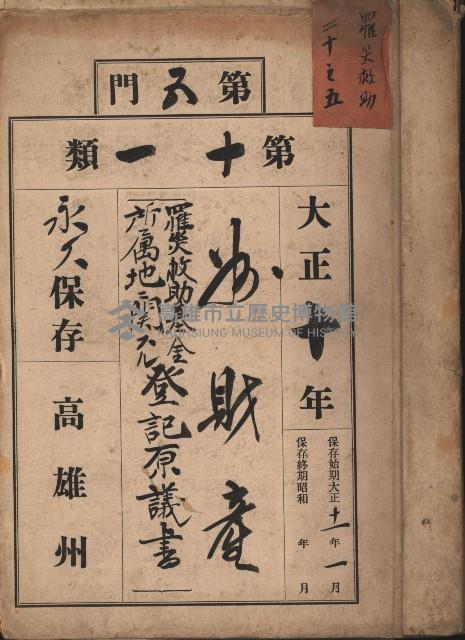 罹災救助
二十之五
第五門
第十一類
大正十年
保存始期大正十一年一月
保存終期昭和 年 月
州財産
罹災救助基金
所属地
登記原議書
永久保存
高雄州
高雄市立歷史博物館
KAOHSIUNG MUSEUM OF HISTORY